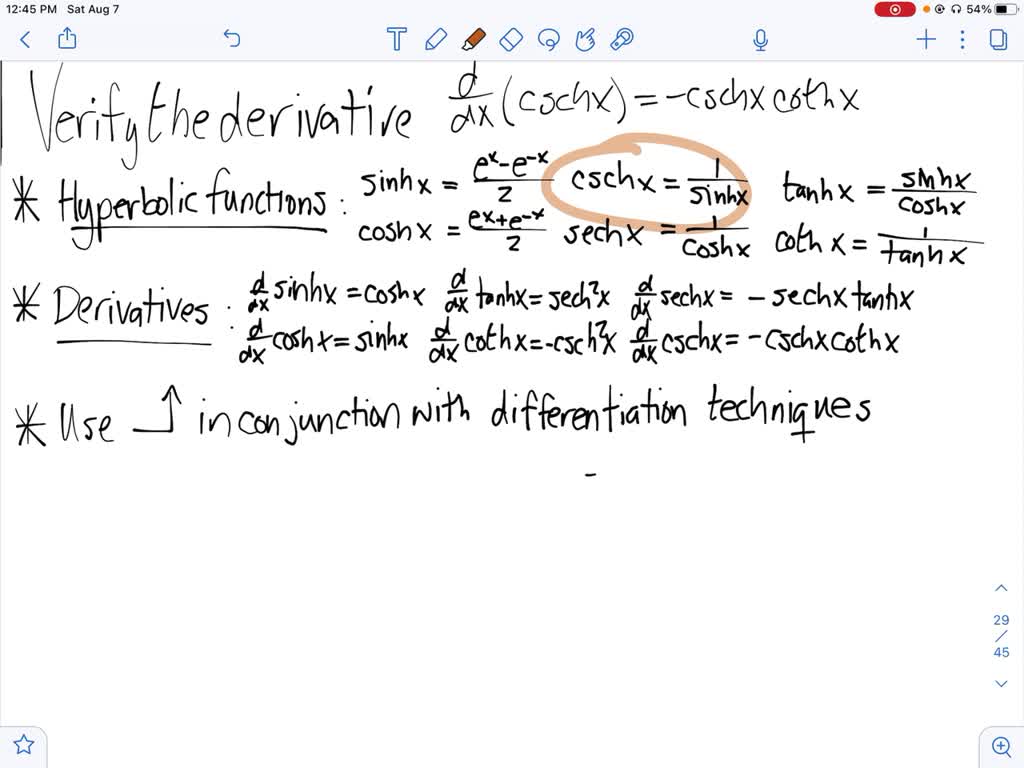 12:45 PM Sat Aug 7 54%
Verify the derivative d/dx (cschx) = -cschx coth x
* Hyperbolic functions : sinhx = (e^x - e^-x)/2 cschx = 1/sinhx tanhx = sinhx/coshx
coshx = (e^x + e^-x)/2 sechx = 1/coshx coth x = 1/tanhx
* Derivatives : d/dx sinhx = coshx d/dx tanhx = sech²x d/dx sechx = - sechx tanhx
d/dx coshx = sinhx d/dx cothx = -csch²x d/dx cschx = -cschx cothx
* Use ↑ in conjunction with differentiation techniques
-
29
/
45